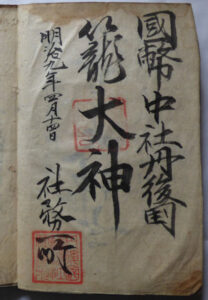 國幣中社丹後国
籠大神
明治九年四月十四日
社務所